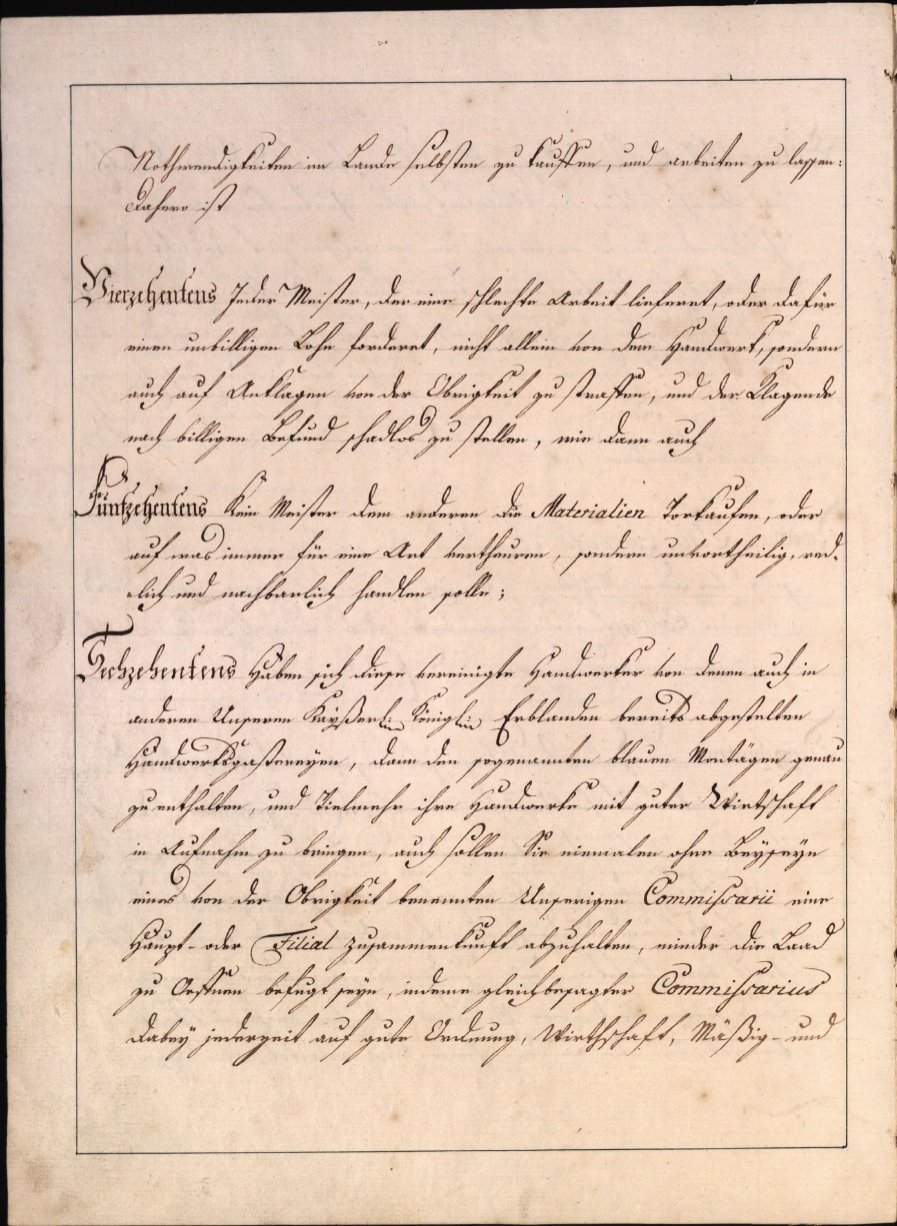 Nothwendigkeiten im Lande selbsten zu kauffen, und arbeiten zu lassen:
Dahero ist
Vierzehentens Jeder Meister, der eine schlechte Arbeit lieferet, oder dafür
einen unbilligen Lohn forderet, nicht allein von dem Handwerk, sondern
auch auf Anklagen von der Obrigkeit zu straffen, und der Klagende
nach billigen Befund schadlos zu stellen, wie dann auch
Fünfzehentens Kein Meister dem anderen die Materialien Vorkaufen, oder
auf was immer für eine Art vertheuren, sondern unvortheilig, red-
-lich und nachbarlich handlen solle;
Sechzehentens Haben sich diese vereinigte Handwerker von denen auch in
anderen Unseren Kayßerl: Königl: Erblanden bereits abgestelten
Handwerksgastereyen, dann den sogenannten blauen Montägen genau
zu enthalten, und Vielmehr ihre Handwerke mit guter Wirtschaft
in Aufnahm zu bringen, auch sollen Sie niemalen ohne Beyseyn
eines von der Obrigkeit benennten Unserigen Commissarii eine
Haupt- oder Filial Zusammenkunft abzuhalten, minder die Laad
zu Oeffnen befugt seyn, indeme gleichbesagter Commissarius
dabey jederzeit auf gute Ordnung, Wirthschaft, Mäßig- und